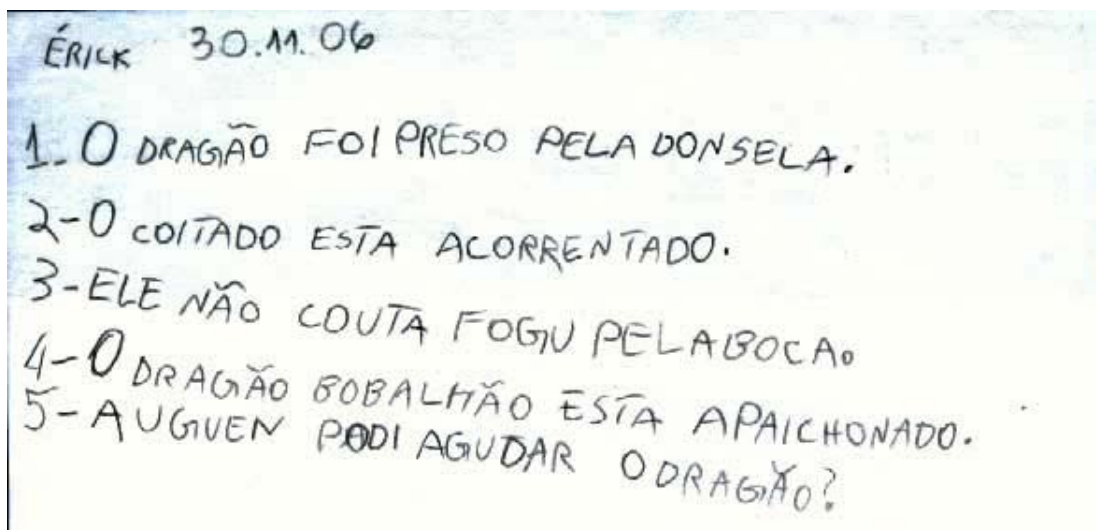 ÉRICK 30.11.06
1-O DRAGÃO FOI PRESO PELA DONSELA.
2-O COITADO ESTA ACORRENTADO.
3-ELE NÃO COUTA FOGU PELABOCA.
4-O DRAGÃO BOBALHÃO ESTA APAICHONADO.
5-AUGUEN PODI AGUDAR O DRAGÃO?